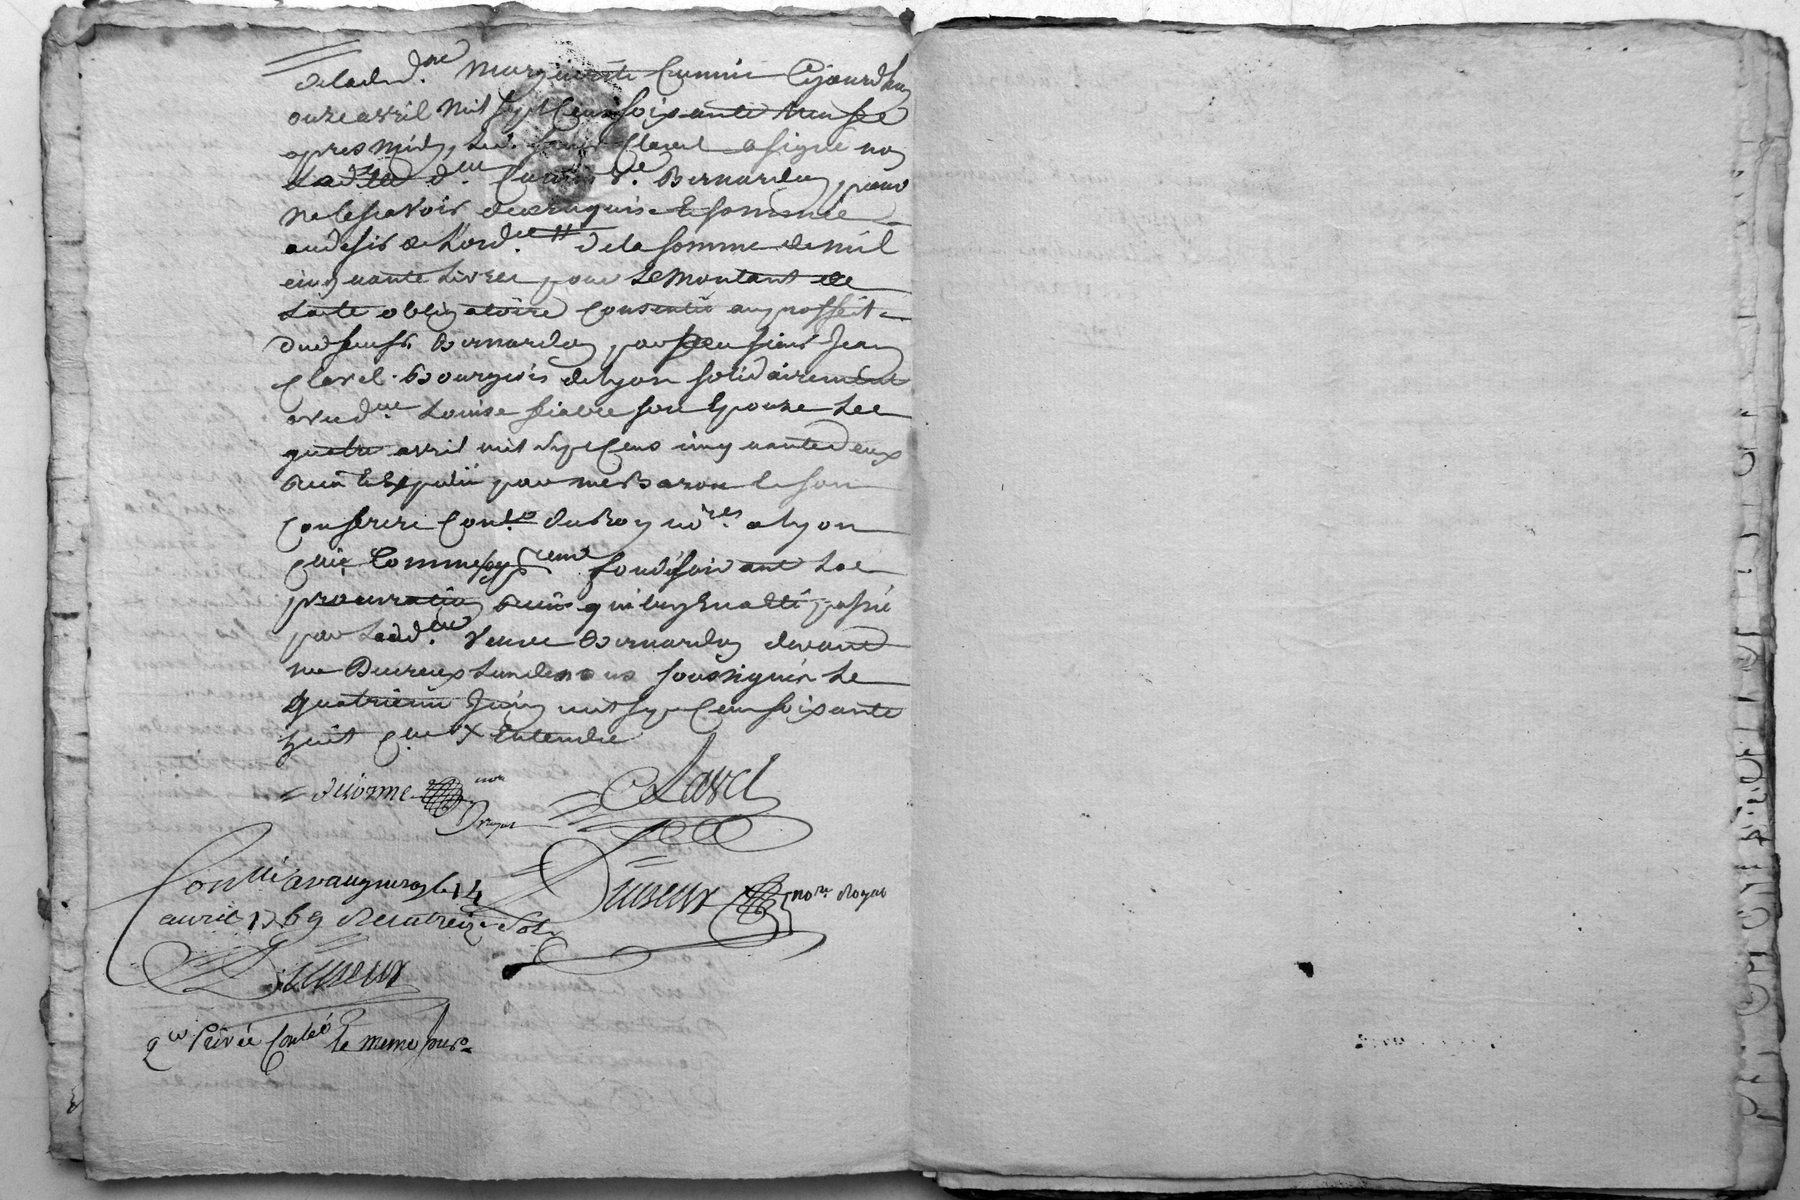 de lad. d.^me Marguerite Cunnie Cejourdhuy
onze avril mil sept Cens soixante neuf
apres midy, Led. sieur Clavel a signé non
Ladite d.^lle v.^e Bernardon, pour
ne le scavoir de ce enquise et sommée
au desir de L'ord.^ce // de la somme de mil
cinquante Livres pour Le montant de
Lacte obligatoire Consentie au proffit
dud. feu sr. Bernardon, par sieur Jean
Clavel Bourgeois de Lyon solidairement
avec d.^me Louise son Epouze Le
quatre avril mil sept Cens cinquante deux
Recu et Expedié par me Baron et son
Confrere Con.^rs du Roy no^res a Lyon
fondé suivant La
procuration qui luy En a été passé
par Lad. d.^me veuve Bernardon devant
me Ducreux L'un de nous soussignés Le
quatrieme Juin mil sept Cens soixante
huit X Entendre
Clavel
Ducreux no^re Royal
Con^lle a vaugneray le 14
avril 1769 Recu treize sols
Ducreux
le meme jour